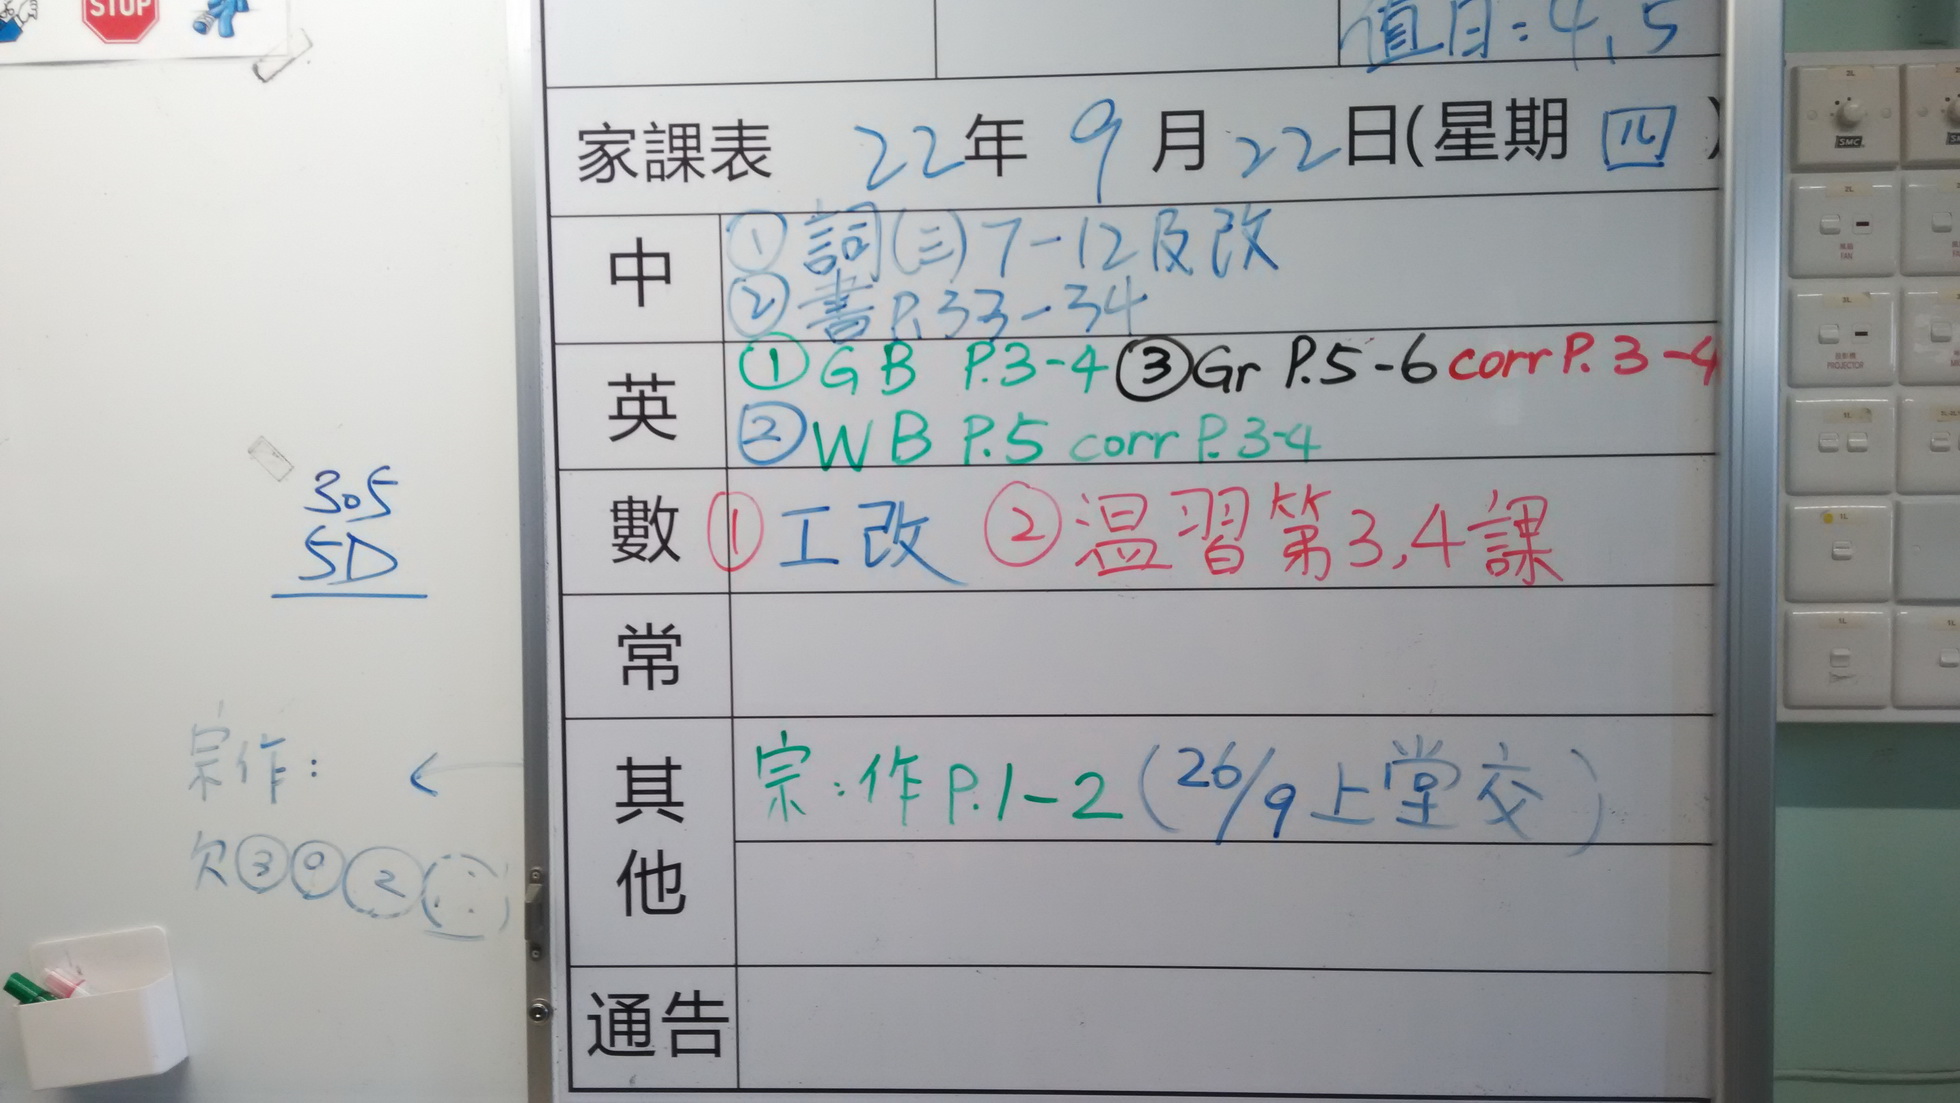 STOP
值日：4, 5
家課表 22年 9月 22日(星期 四)
中
① 詞(三) 7-12及改
② 書P.33-34
英
① GB P.3-4 ③ Gr P.5-6 corr P.3-4
② WB P.5 corr P.3-4
數
① 工改 ② 温習第3,4課
常
其他
宗：作P.1-2 (26/9上堂交)
通告
305
5D
宗作：←
欠③⓪②
SMC
FAN
PROJECTOR